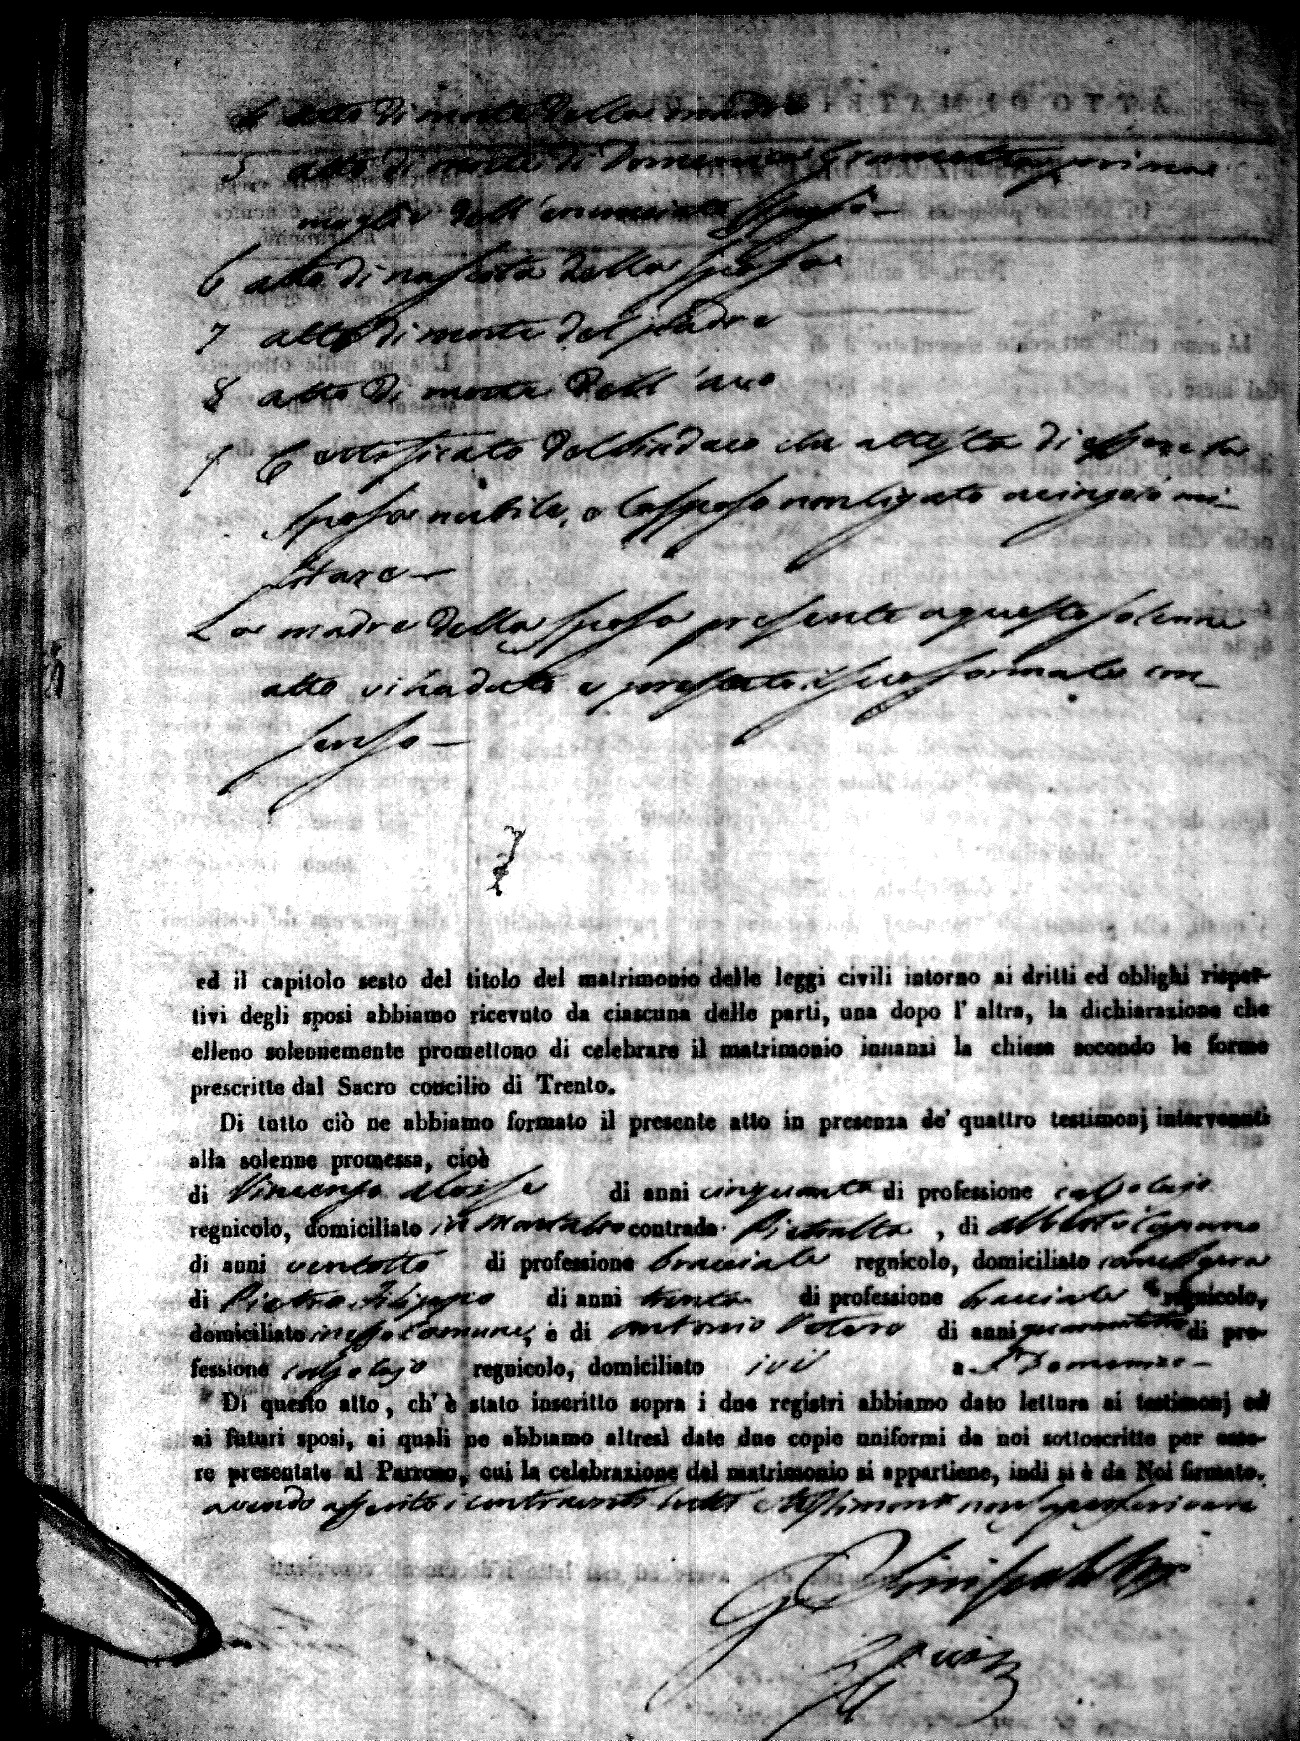 4 atto di morte della madre
5 atto di morte di Domenica prima
moglie dell'enunciato Sposo
6 atto di nascita della sposa
7 atto di morte del padre
8 atto di morte dell'avo
9 Certificato del Sindaco che attesta di essere la
sposa nubile, e lo sposo non ligato a vincoli mi-
litare
La madre della sposa presente a questo solenne
atto vi ha dato e prestato il suo formale con-
senso
ed il capitolo sesto del titolo del matrimonio delle leggi civili intorno ai dritti ed oblighi rispet-
tivi degli sposi abbiamo ricevuto da ciascuna delle parti, una dopo l'altra, la dichiarazione che
elleno solennemente promettono di celebrare il matrimonio innanzi la chiesa secondo le forme
prescritte dal Sacro concilio di Trento.
Di tutto ciò ne abbiamo formato il presente atto in presenza de' quattro testimonj intervenuti
alla solenne promessa, cioè
di Vincenzo Aloise di anni cinquanta di professione calzolajo
regnicolo, domiciliato in Montalto contrada Pietralta, di Alberto Capano
di anni ventotto di professione bracciale regnicolo, domiciliato
di Pietro Filippo di anni trenta di professione bracciale regnicolo,
domiciliato in esso Comune, e di Antonio Potero di anni di pro-
fessione calzolajo regnicolo, domiciliato ivi a S. Domenico
Di questo atto, ch'è stato inscritto sopra i due registri abbiamo dato lettura ai testimonj ed
ai futuri sposi, ai quali ne abbiamo altresì date due copie uniformi da noi sottoscritte per esse-
re presentate al Parroco, cui la celebrazione del matrimonio si appartiene, indi si è da Noi firmato.
avendo asserito i contraenti tutti e testimoni non sapere scrivere